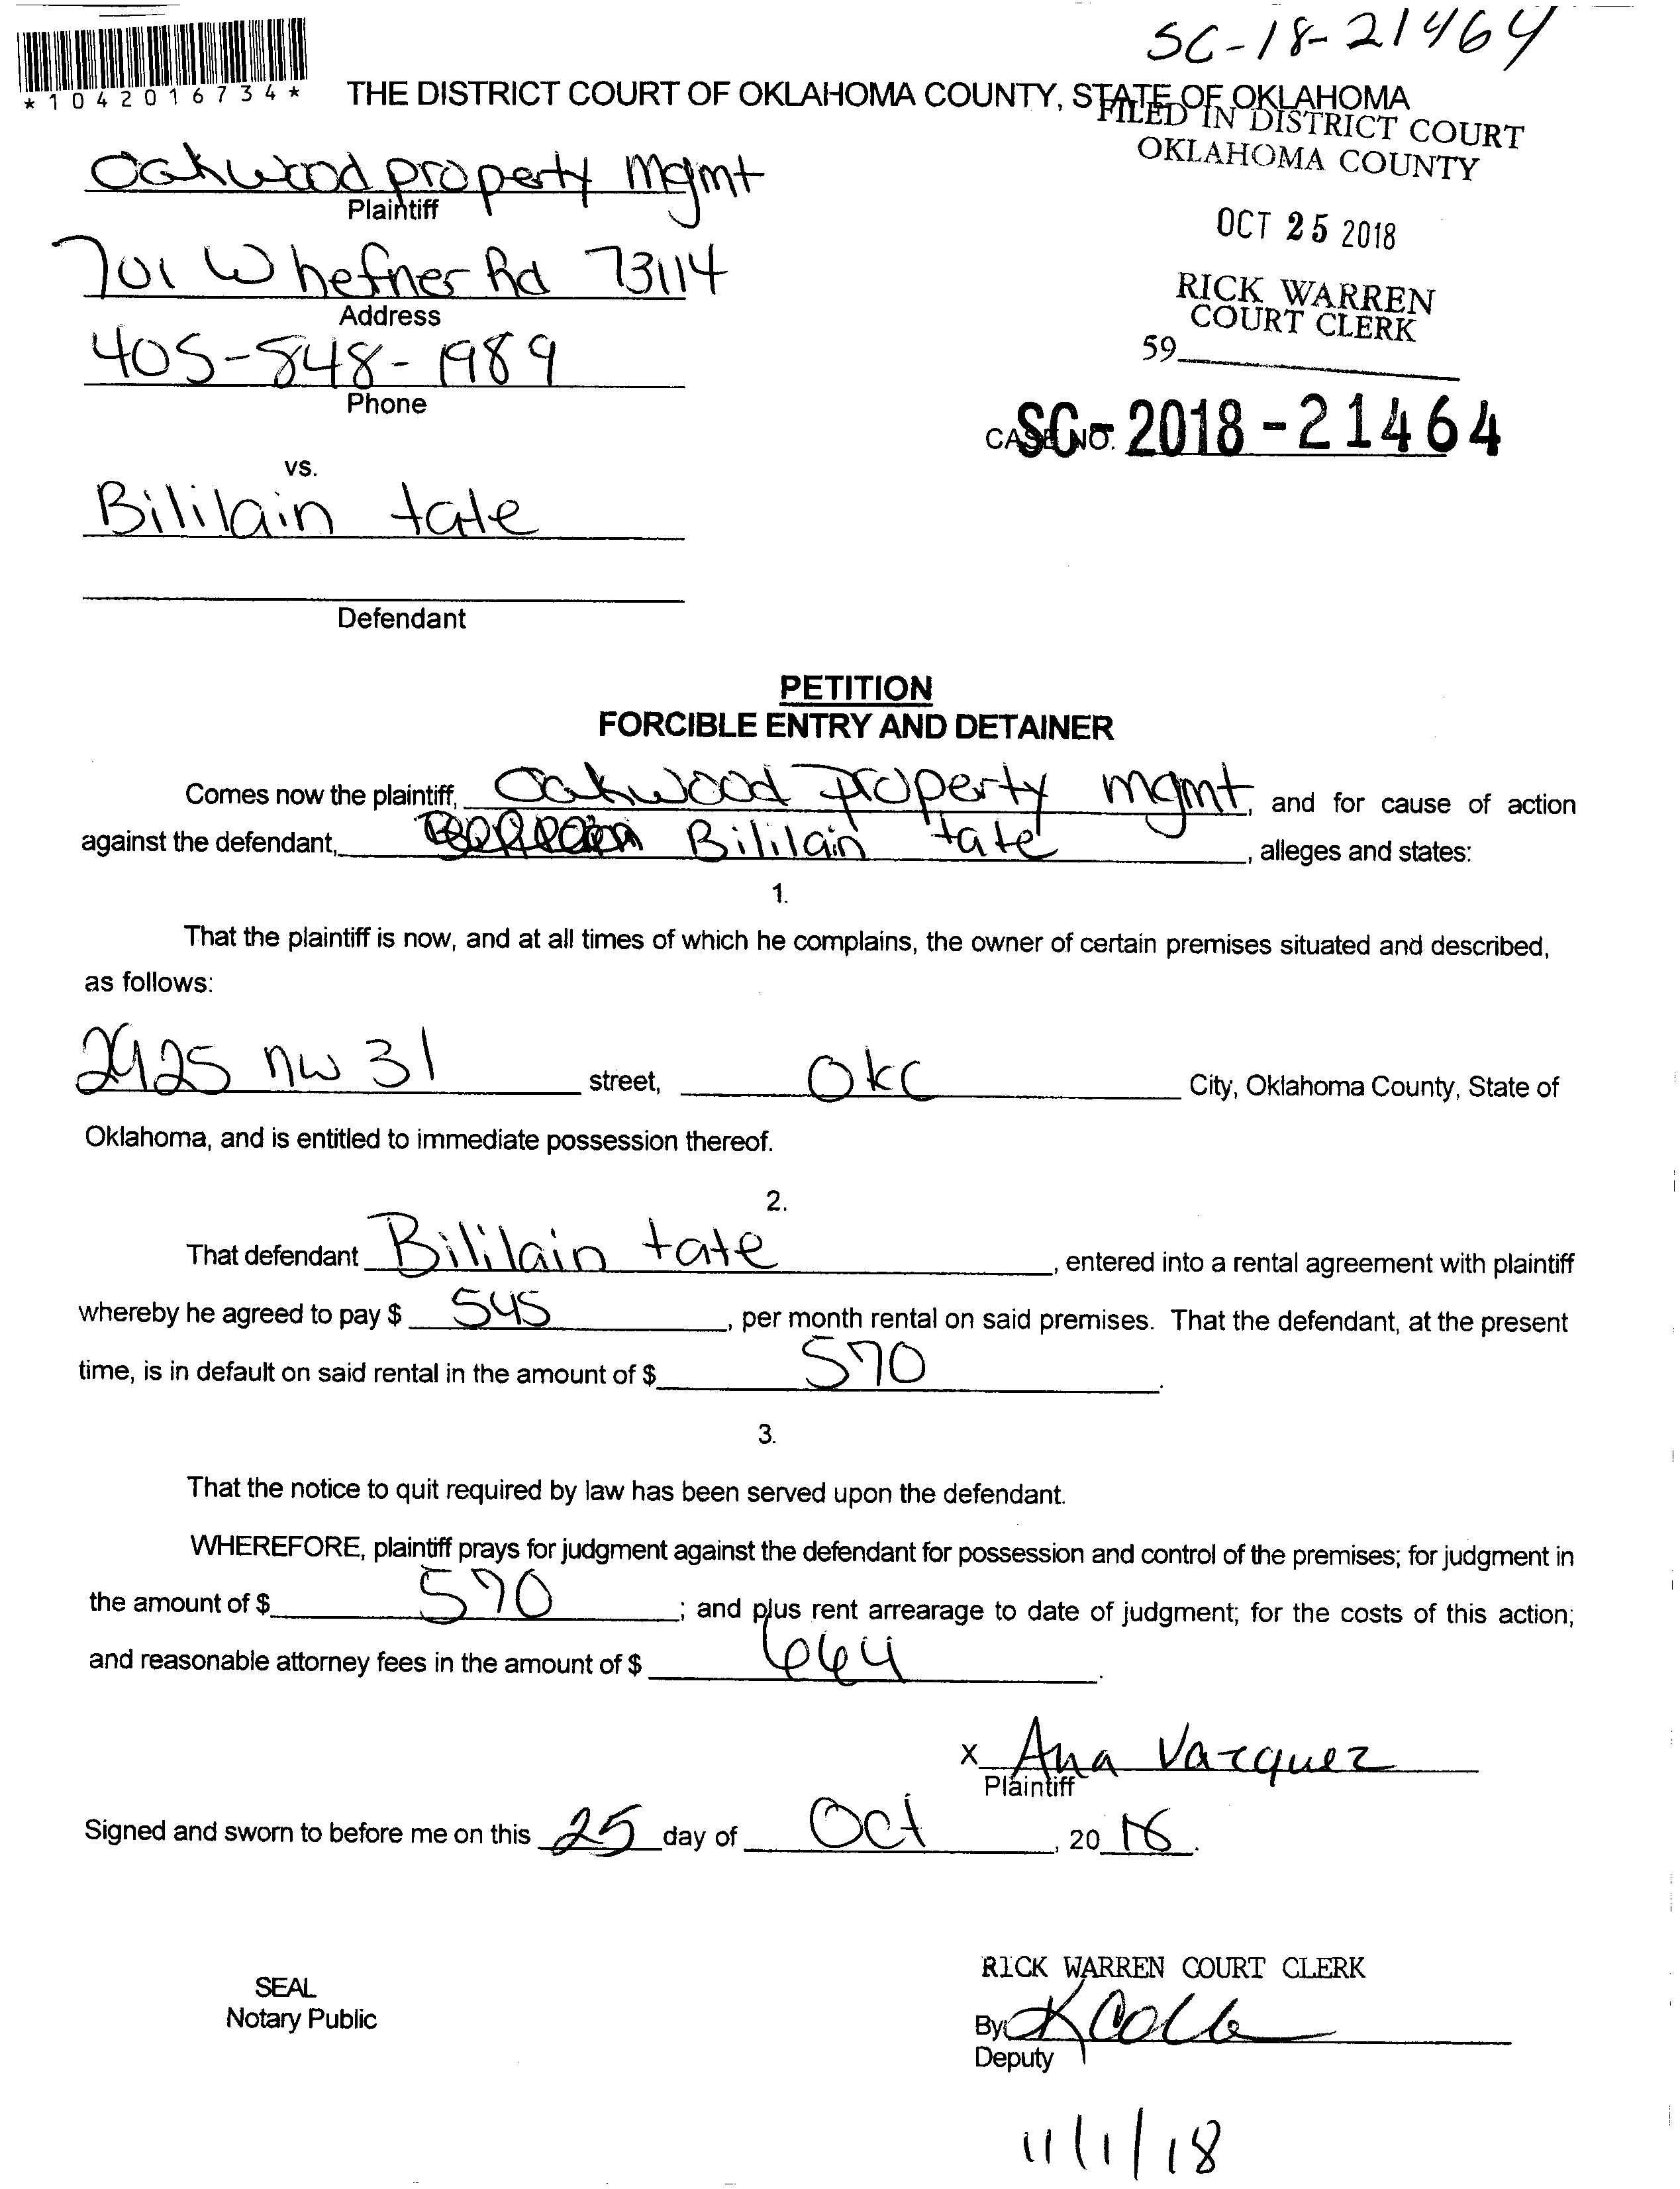 SC-18-21464
*1042016734*
THE DISTRICT COURT OF OKLAHOMA COUNTY, STATE OF OKLAHOMA
FILED IN DISTRICT COURT
OKLAHOMA COUNTY
Oakwood property mgmt
Plaintiff
OCT 25 2018
701 W hefner Rd 73114
Address
RICK WARREN
COURT CLERK
405-848-1989
Phone
59
CASE NO. SC-2018-21464
vs.
Bililain tate
Defendant
PETITION
FORCIBLE ENTRY AND DETAINER
Comes now the plaintiff, Oakwood property mgmt, and for cause of action
against the defendant, Bililain tate, alleges and states:
1.
That the plaintiff is now, and at all times of which he complains, the owner of certain premises situated and described,
as follows:
2925 nw 31 street, Okc City, Oklahoma County, State of
Oklahoma, and is entitled to immediate possession thereof.
2.
That defendant Bililain tate, entered into a rental agreement with plaintiff
whereby he agreed to pay $ 545, per month rental on said premises. That the defendant, at the present
time, is in default on said rental in the amount of $ 570.
3.
That the notice to quit required by law has been served upon the defendant.
WHEREFORE, plaintiff prays for judgment against the defendant for possession and control of the premises; for judgment in
the amount of $ 570; and plus rent arrearage to date of judgment; for the costs of this action;
and reasonable attorney fees in the amount of $ 664.
x Ana Vazquez
Plaintiff
Signed and sworn to before me on this 25 day of Oct, 20 18.
SEAL
Notary Public
RICK WARREN COURT CLERK
By
Deputy
11/1/18